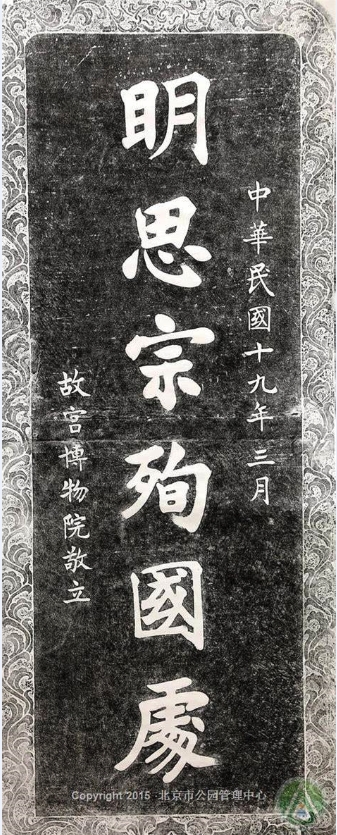 中華民國十九年三月
明思宗殉國處
故宮博物院敬立
Copyright 2015 北京市公园管理中心